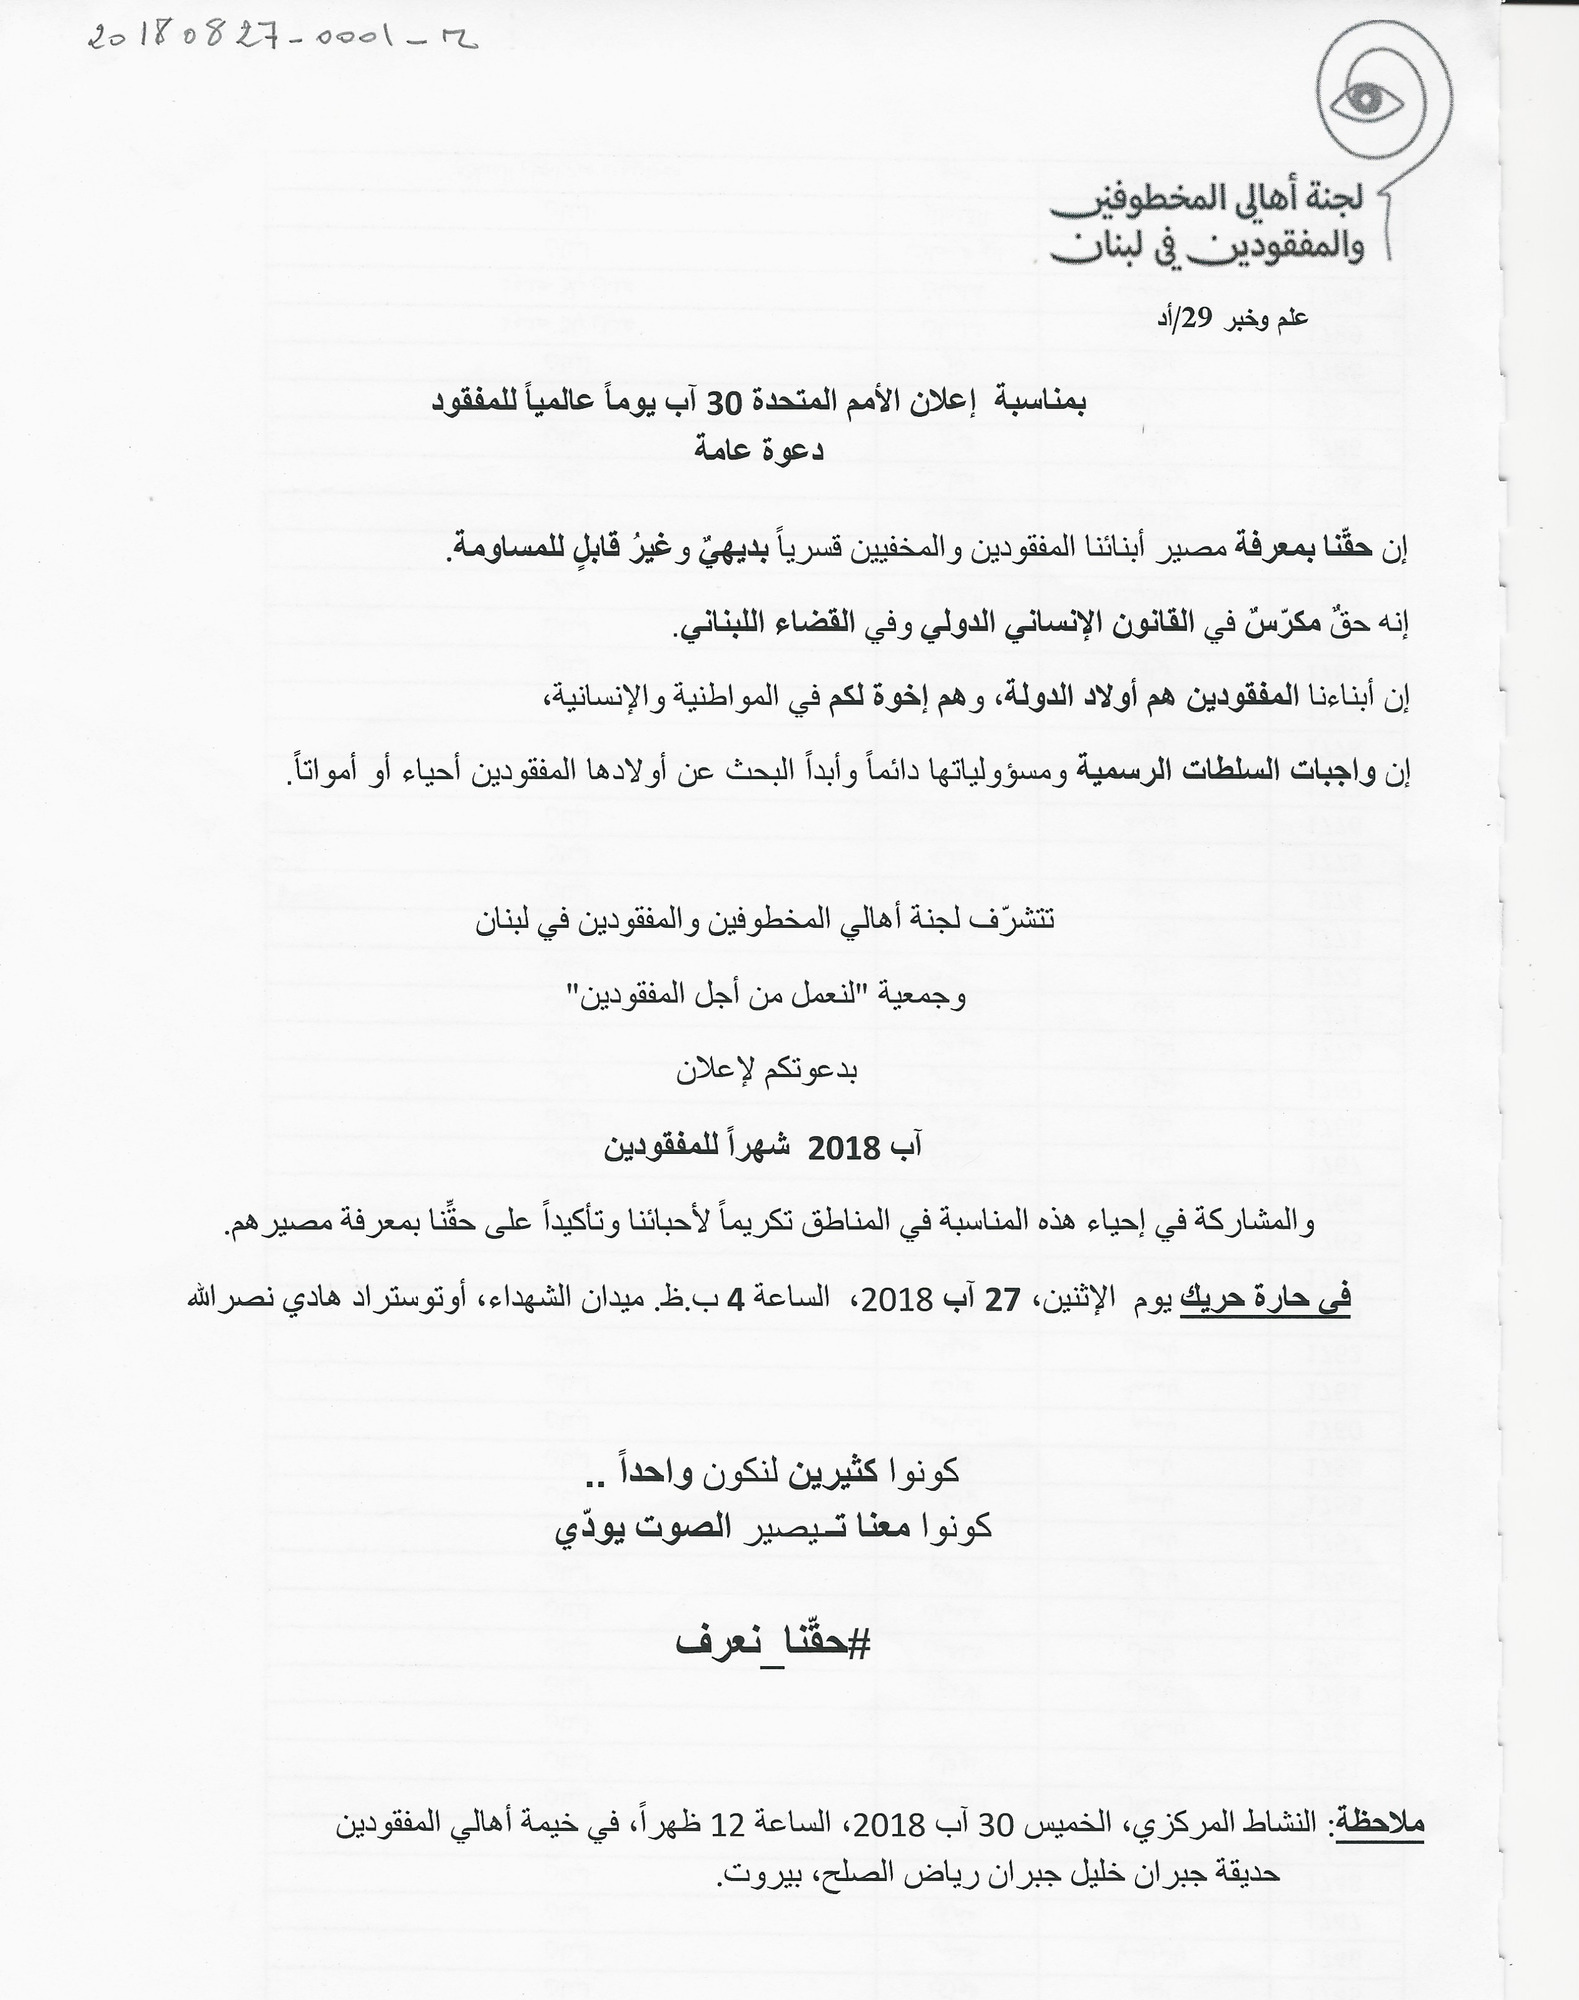 20180827-0001-م
لجنة أهالي المخطوفين
والمفقودين في لبنان
علم وخبر 29/أد
بمناسبة إعلان الأمم المتحدة 30 آب يوماً عالمياً للمفقود
دعوة عامة
إن حقّنا بمعرفة مصير أبنائنا المفقودين والمخفيين قسرياً بديهيٌ وغيرُ قابلٍ للمساومة.
إنه حقٌ مكرّسٌ في القانون الإنساني الدولي وفي القضاء اللبناني.
إن أبناءنا المفقودين هم أولاد الدولة، وهم إخوة لكم في المواطنية والإنسانية،
إن واجبات السلطات الرسمية ومسؤولياتها دائماً وأبداً البحث عن أولادها المفقودين أحياء أو أمواتاً.
تتشرّف لجنة أهالي المخطوفين والمفقودين في لبنان
وجمعية "لنعمل من أجل المفقودين"
بدعوتكم لإعلان
آب 2018 شهراً للمفقودين
والمشاركة في إحياء هذه المناسبة في المناطق تكريماً لأحبائنا وتأكيداً على حقِّنا بمعرفة مصيرهم.
في حارة حريك يوم الإثنين، 27 آب 2018، الساعة 4 ب.ظ. ميدان الشهداء، أوتوستراد هادي نصرالله
كونوا كثيرين لنكون واحداً ..
كونوا معنا تـيصير الصوت يودّي
#حقّنا_نعرف
ملاحظة: النشاط المركزي، الخميس 30 آب 2018، الساعة 12 ظهراً، في خيمة أهالي المفقودين
حديقة جبران خليل جبران رياض الصلح، بيروت.